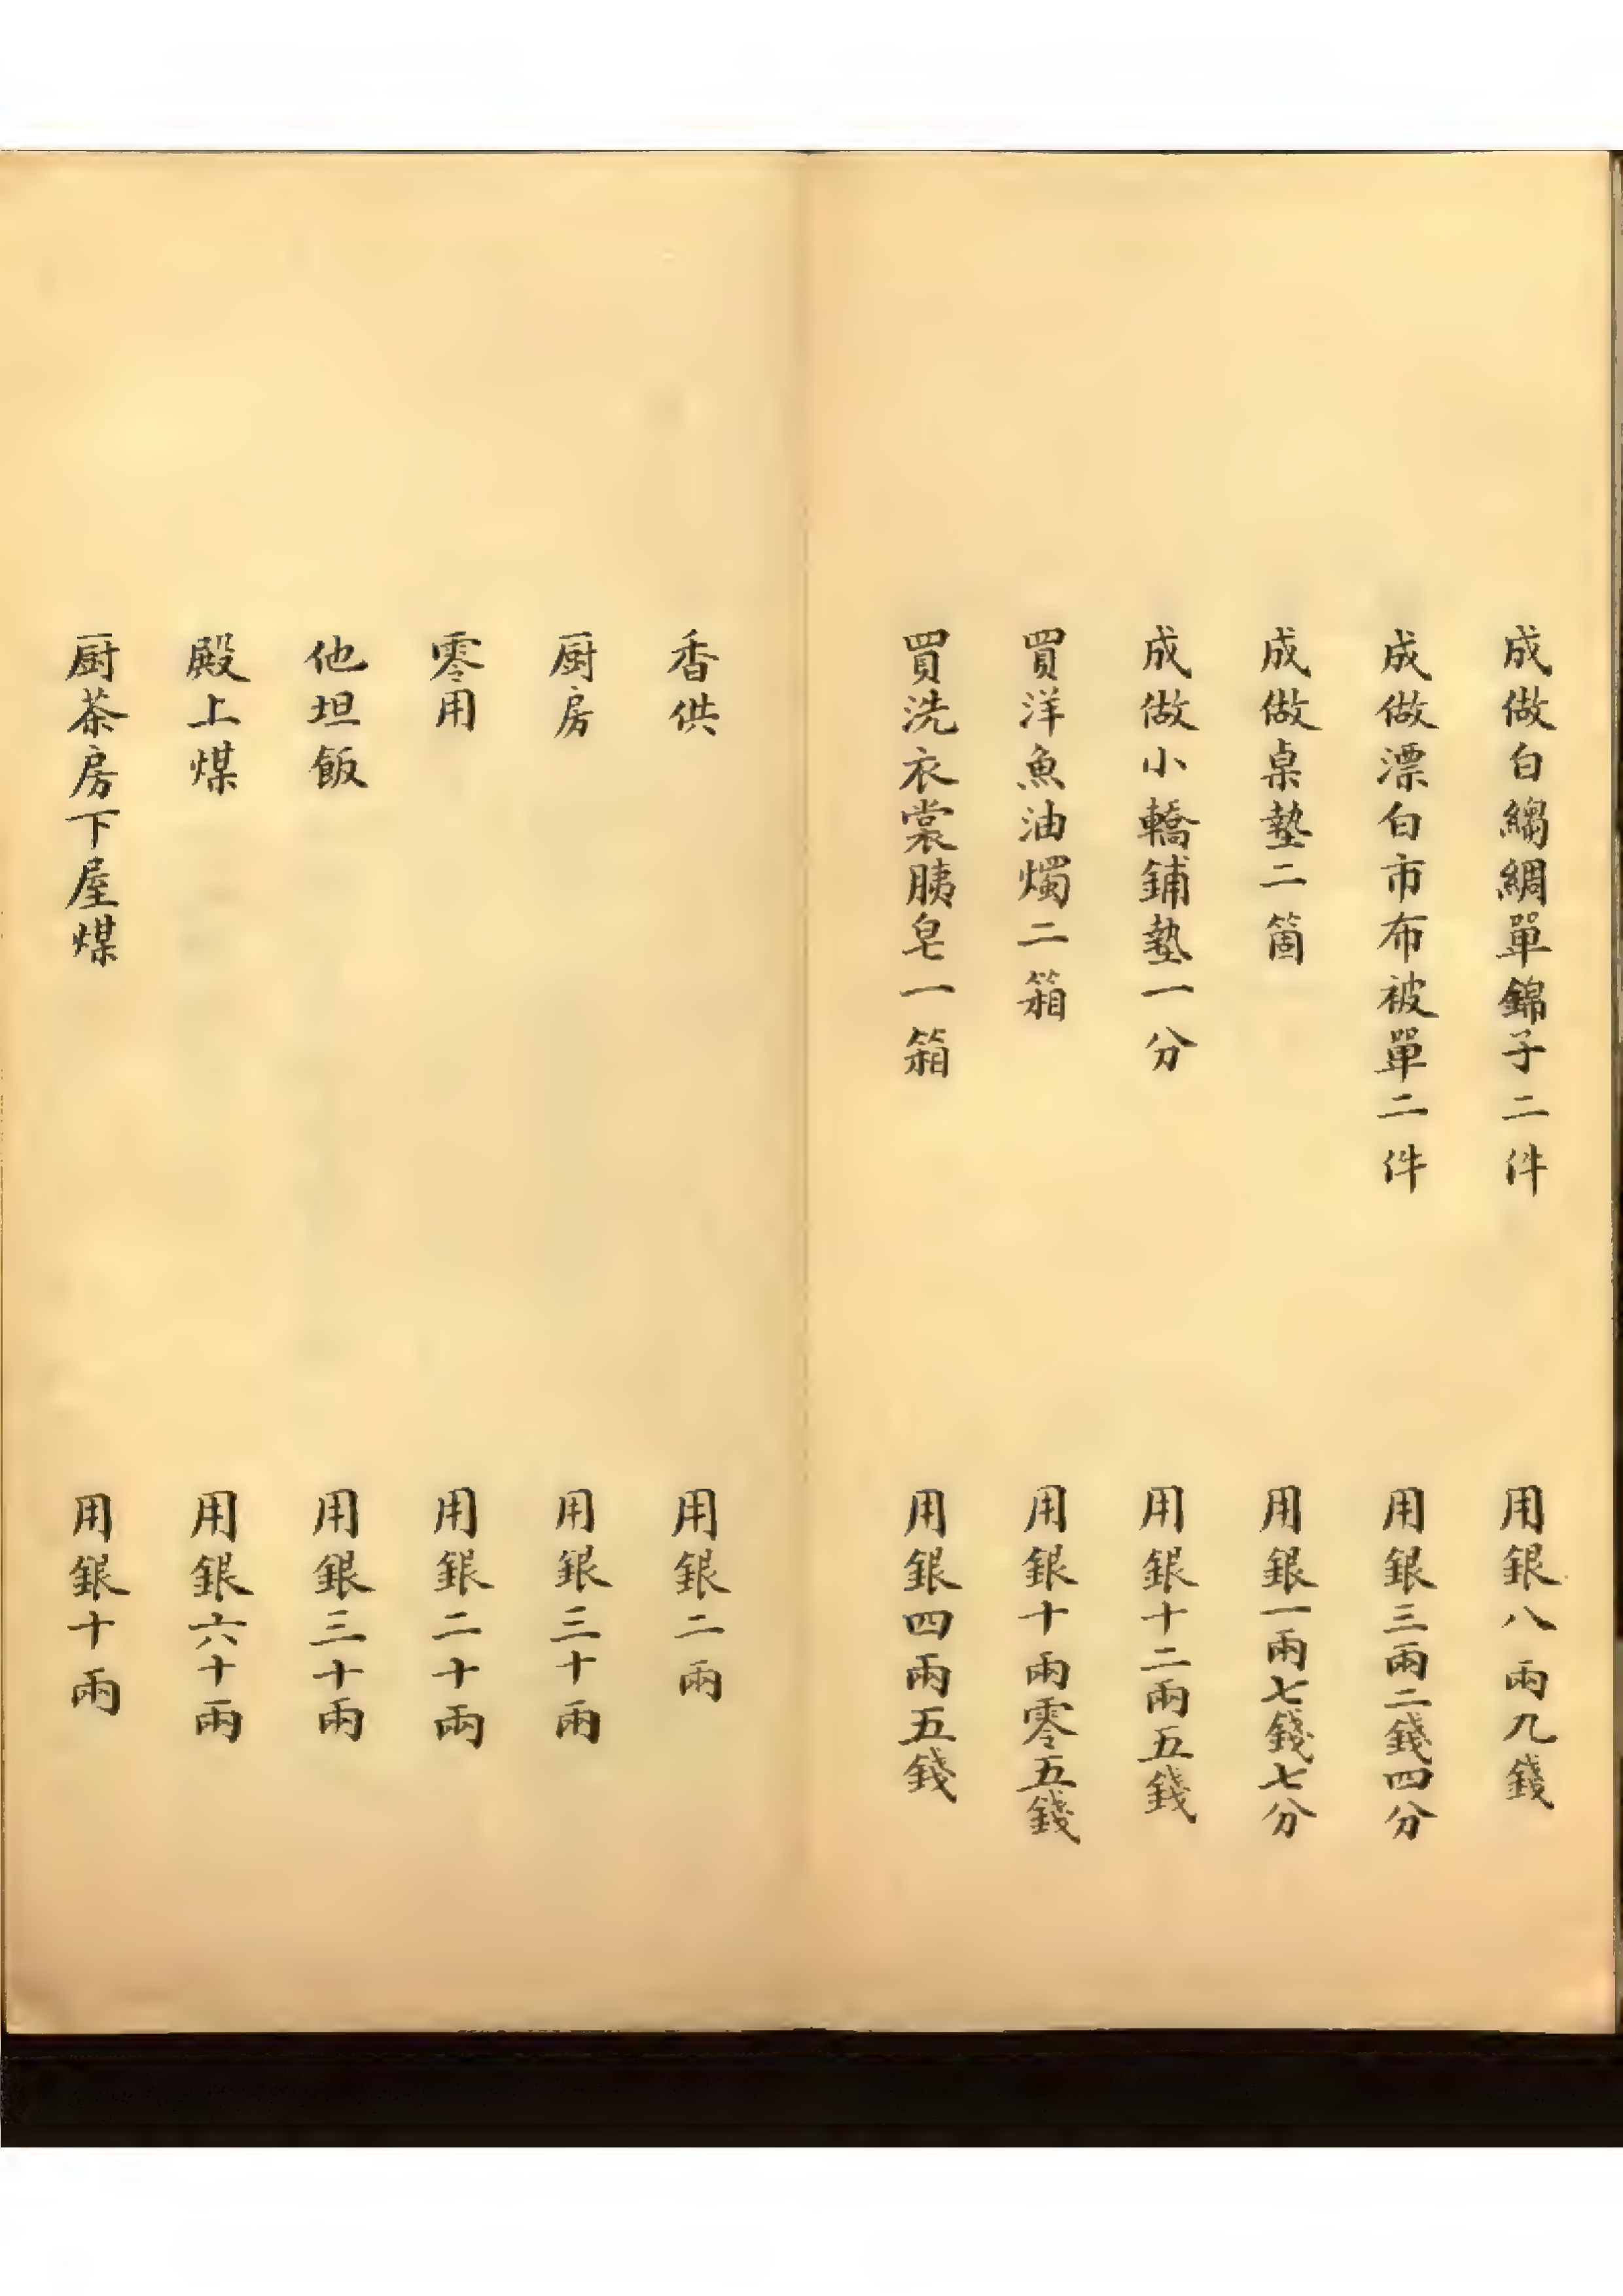 成做白縐綢單錦子二件 用銀八兩九錢
成做漂白市布被單二件 用銀三兩二錢四分
成做桌墊二箇 用銀一兩七錢七分
成做小轎鋪墊一分 用銀十二兩五錢
買洋魚油燭二箱 用銀十兩零五錢
買洗衣裳胰皂一箱 用銀四兩五錢
香供 用銀二兩
厨房 用銀三十兩
零用 用銀二十兩
他坦飯 用銀三十兩
殿上煤 用銀六十兩
厨茶房下屋煤 用銀十兩